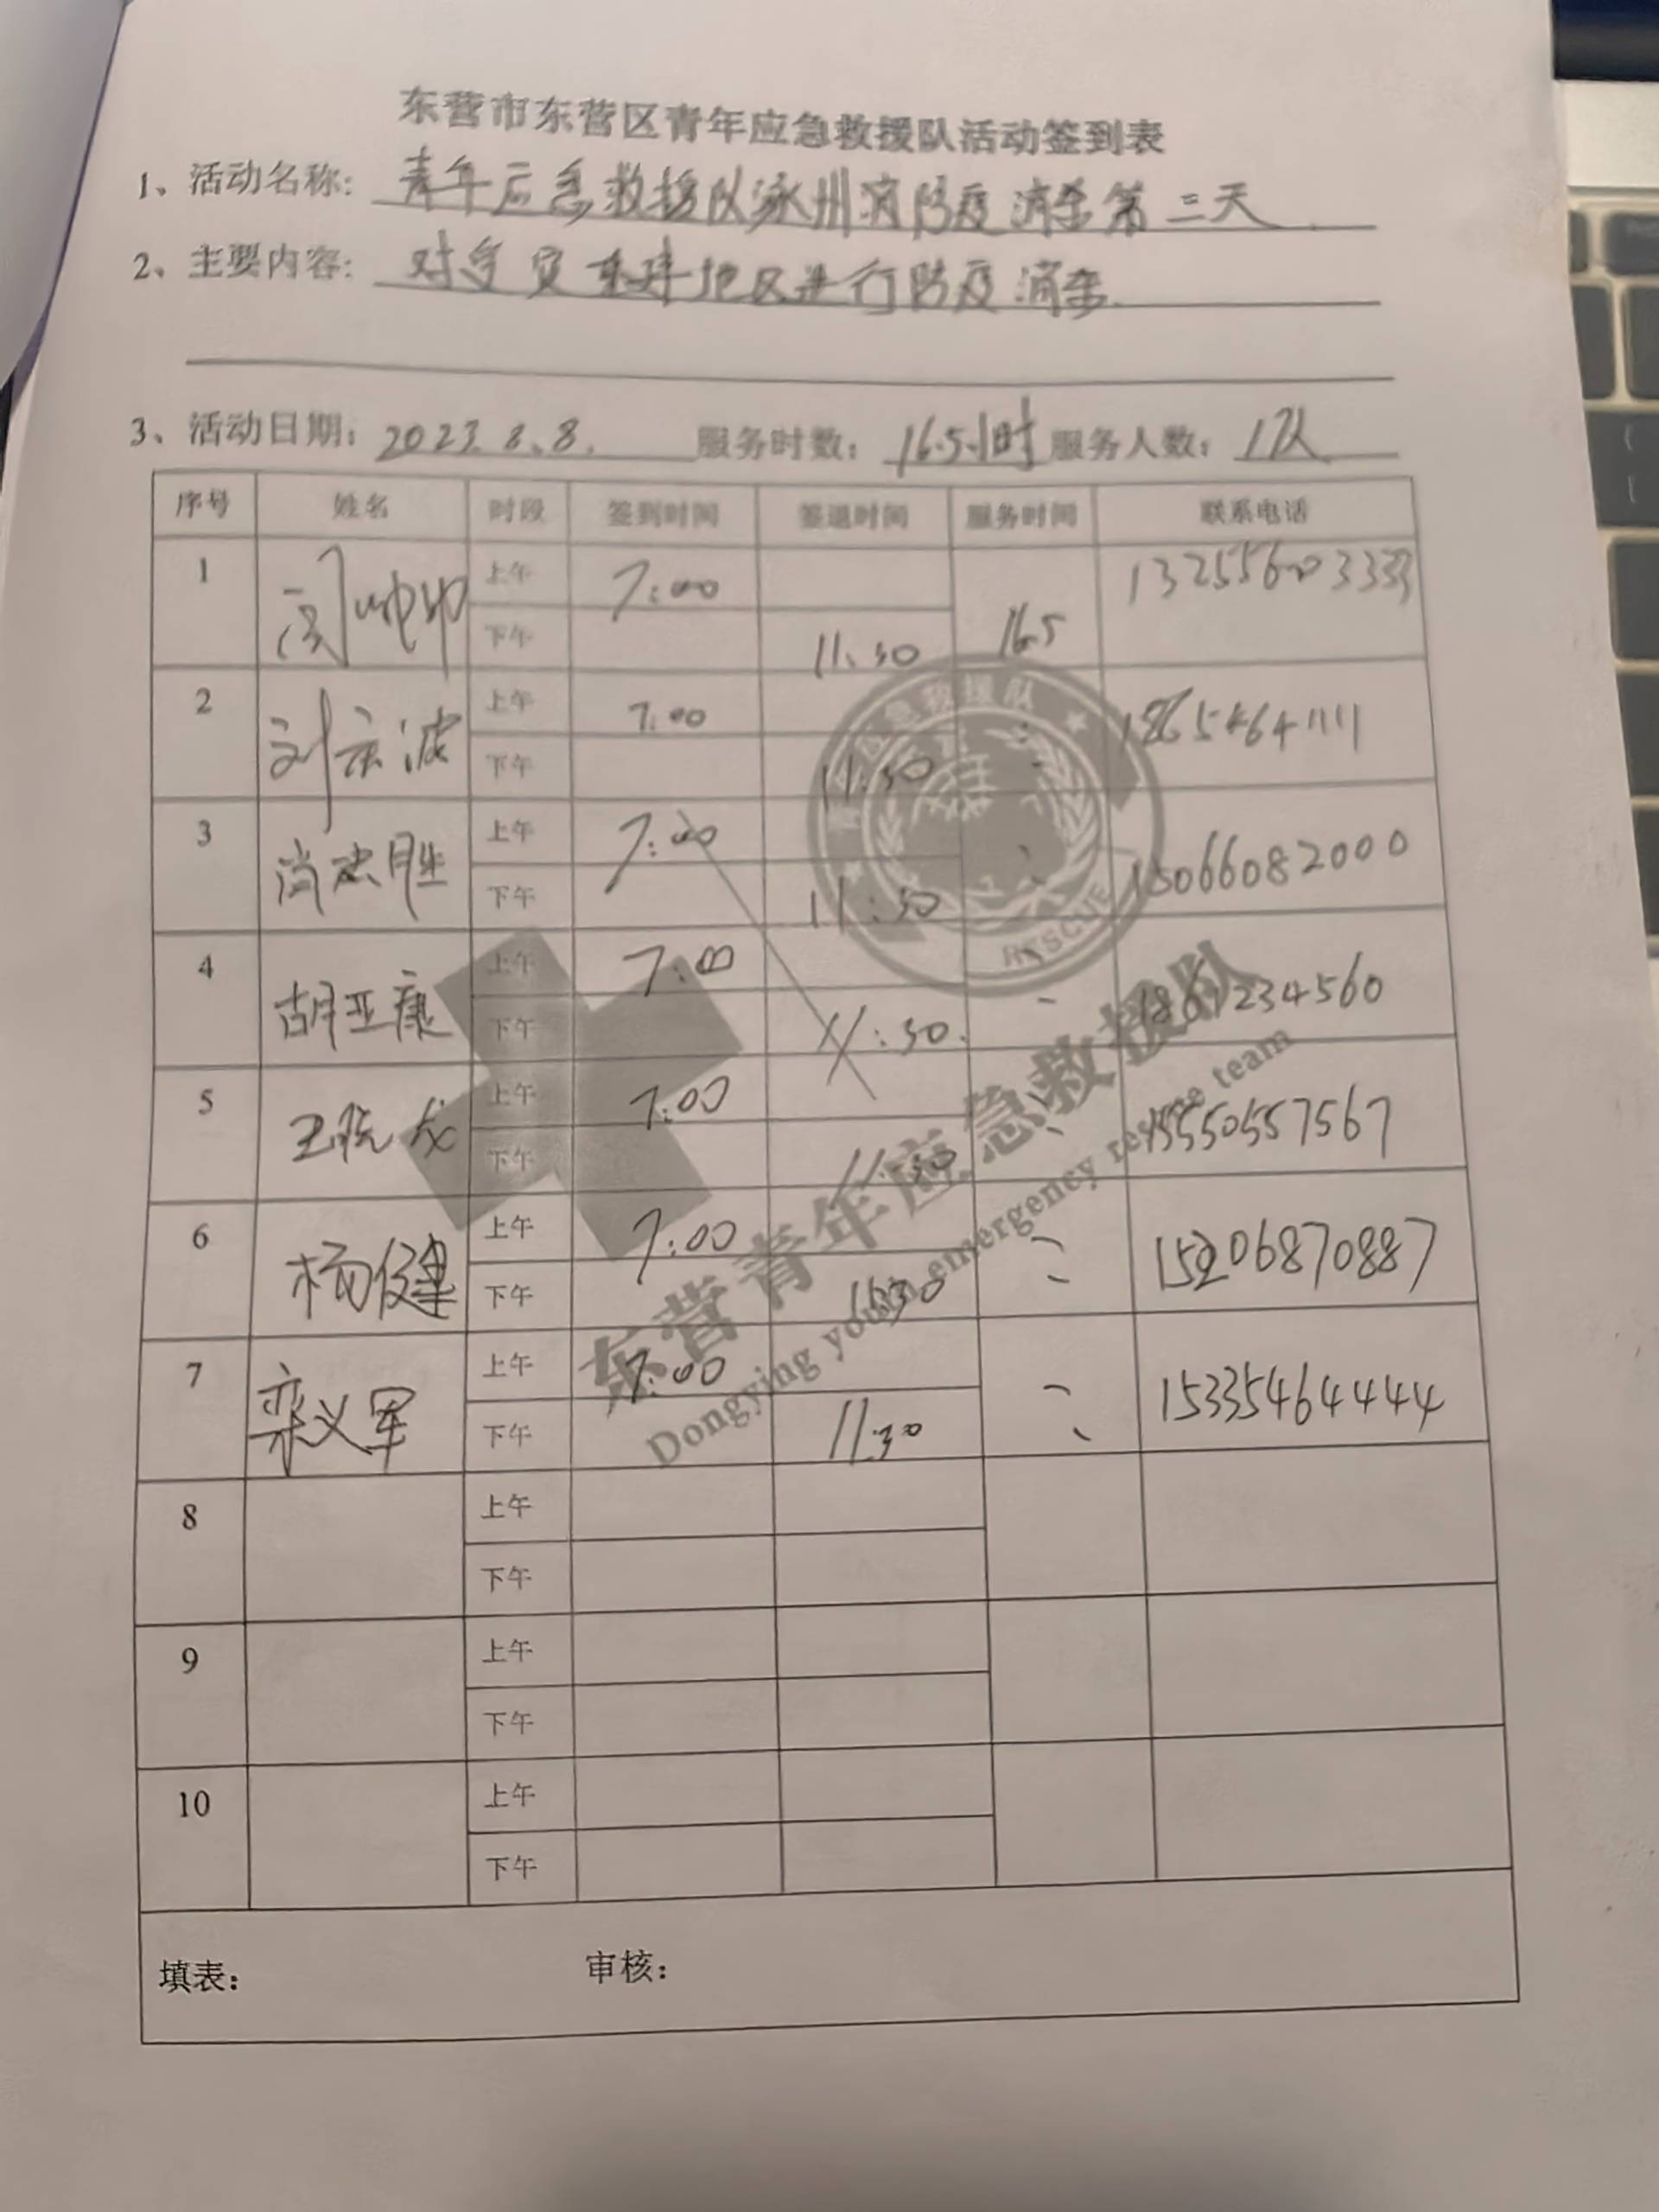 东营市东营区青年应急救援队活动签到表
1、活动名称: 青年应急救援队涿州消防疫消杀第二天
2、主要内容: 对 地区进行防疫消杀.
3、活动日期: 2023.8.8. 服务时数: 16.5小时 服务人数: 1队
序号 姓名 时段 签到时间 签退时间 服务时间 联系电话
1 闫帅帅 上午 7:00
下午 11:30 16.5
2 刘云波 上午 7:00 18654641111
下午 11:30
3 胜 上午 7:00 15066082000
下午 11:30
4 胡亚康 上午 7:00
下午 11:30.
5 王晓龙 上午 7:00 15550557567
下午 11:30
6 杨健 上午 7:00 15206870887
下午 11:30
7 栾义军 上午 7:00 15335464444
下午 11:30
8 上午
下午
9 上午
下午
10 上午
下午
填表: 审核:
应急救援队
RESCUE
东营青年应急救援队
Dongying youth emergency rescue team